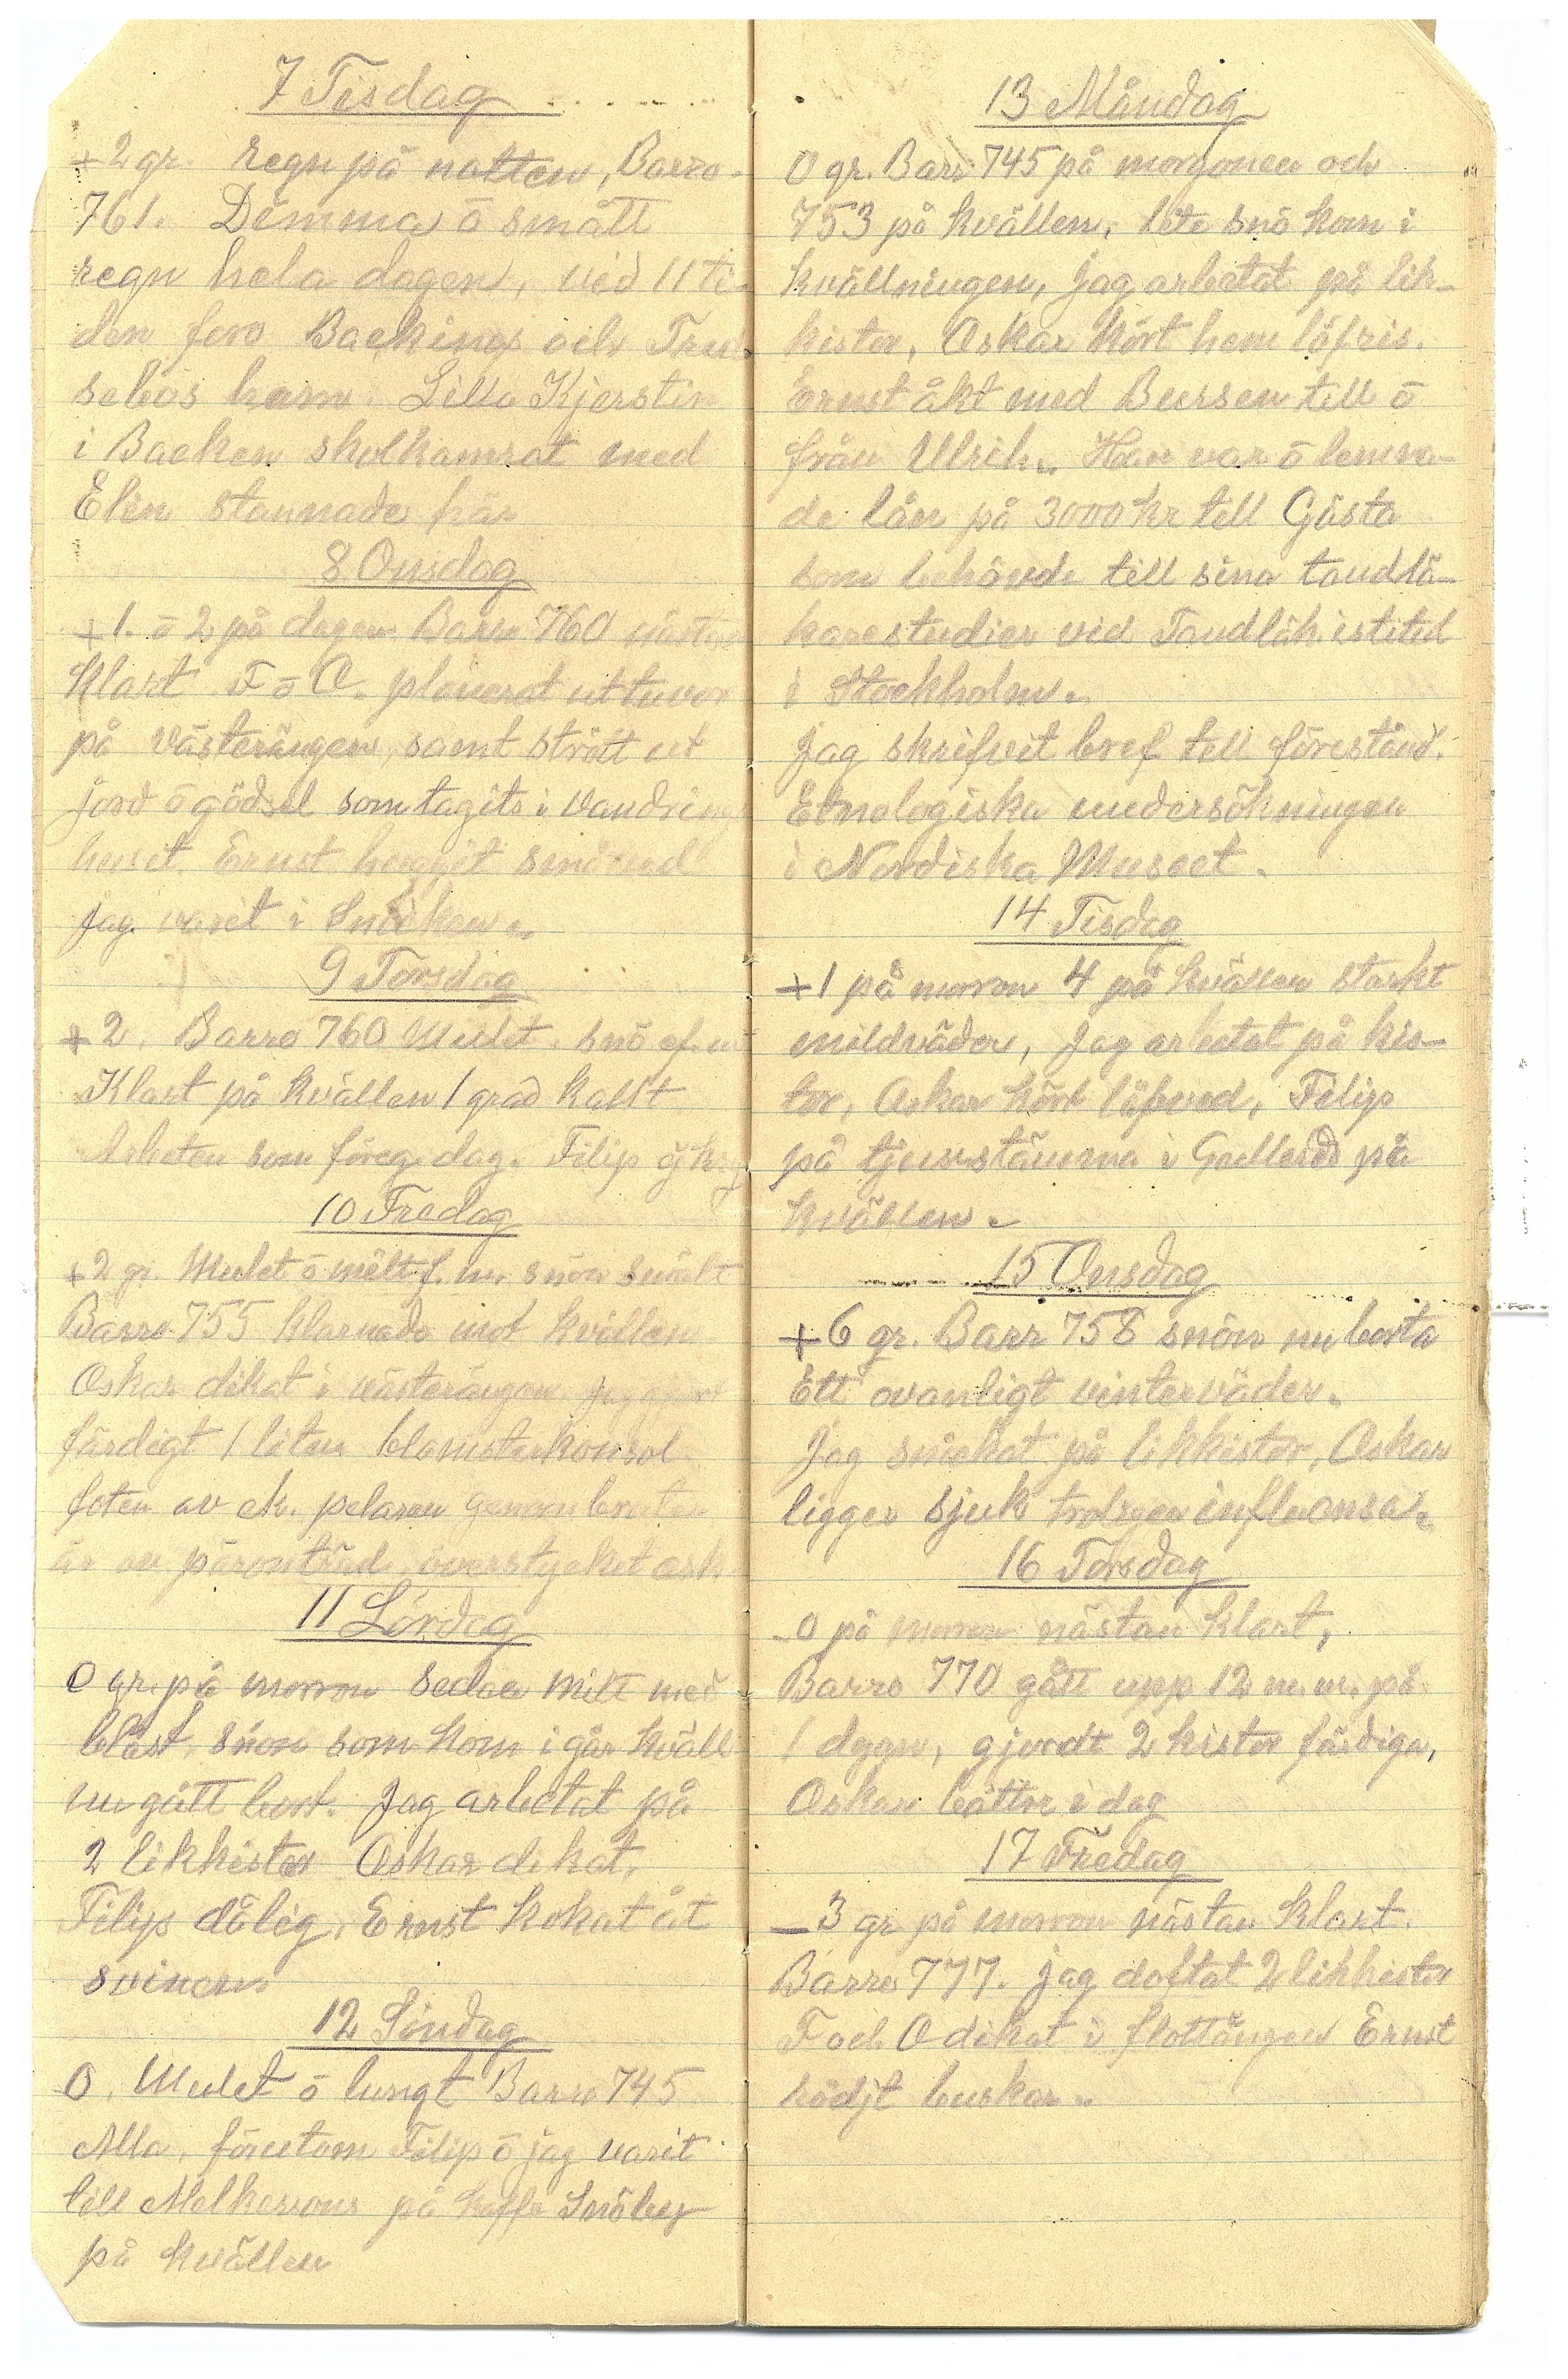 7 Tisdag
+2 gr. regn på natten, Barro.
761. Dimma ō smått
regn hela dagen, vid 11 ti-
den foro Backings och Tru
sebos hem. Lilla Kjerstin
i Backen skolkamrat med
Elin stannade här
8 Onsdag
+1. ō 2 på dagen Barro 760 nästan
Klart. F ō O. planerat ut tuvor
på västerängen, samt strött ut
jord ō gödsel som tagits i vandring
huset. Ernst huggit småved
jag varit i Snicken.
9 Torsdag
+2. Barro 760 Mulet. snö ef. m
Klart på kvällen 1 grad kallt
Arbeten som föreg. dag. Filip
10 Fredag
+2 gr. Mulet ō milt f. m. snön smält
Barro 755 klarnade mot kvällen
Oskar dikat i västerängen jag gjort
färdigt 1 liten blomsterkonsol
foten av ek. pelaren genombruten
är av päronträd, överstycket ask.
11 Lördag
0 gr. på morron sedan milt med
blåst. snön som kom i går kväll
nu gått bort. Jag arbetat på
2 likkistor Oskar dikat.
Filip dålig. Ernst kokat åt
svinen
12 Söndag
0. Mulet ō lungt Barro 745
Alla, förutom Filip ō jag varit
till Melkersons på kaffe Snöby
på kvällen
13 Måndag
0 gr. Barr 745 på morgonen och
753 på kvällen, lite snö kom i
kvällningen, Jag arbetat på lik-
kistor, Oskar kört hem löfris.
Ernst åkt med Bussen till ō
från Ulrih. Han var ō lemna-
de lån på 3000 kr till Gösta
som behövde till sina tandlä-
karestudier vid Tandläk. istitut
i Stockholm.
Jag skrifvit bref till förestånd.
Etnologiska undersökningen
i Nordiska Museet.
14 Tisdag
+1 på morron 4 på kvällen starkt
mildväder, Jag arbetat på kis-
tor, Oskar kört löfved, Filip
på tjenstäurna i Gullered på
kvällen.
15 Onsdag
+6 gr. Barr 758 snön nu borta
Ett ovanligt vinterväder.
Jag snickat på likkistor, Oskar
ligger sjuk troligen influensa.
16 Torsdag
0 på morron nästan klart,
Barro 770 gått upp 12 m.m. på
1 dygn, gjordt 2 kistor färdiga,
Oskar bättre i dag
17 Fredag
-3 gr på morron nästan Klart.
Barro 777. jag doftat 2 likkistor
F och O dikat i slottängen Ernst
rödjt buskar.